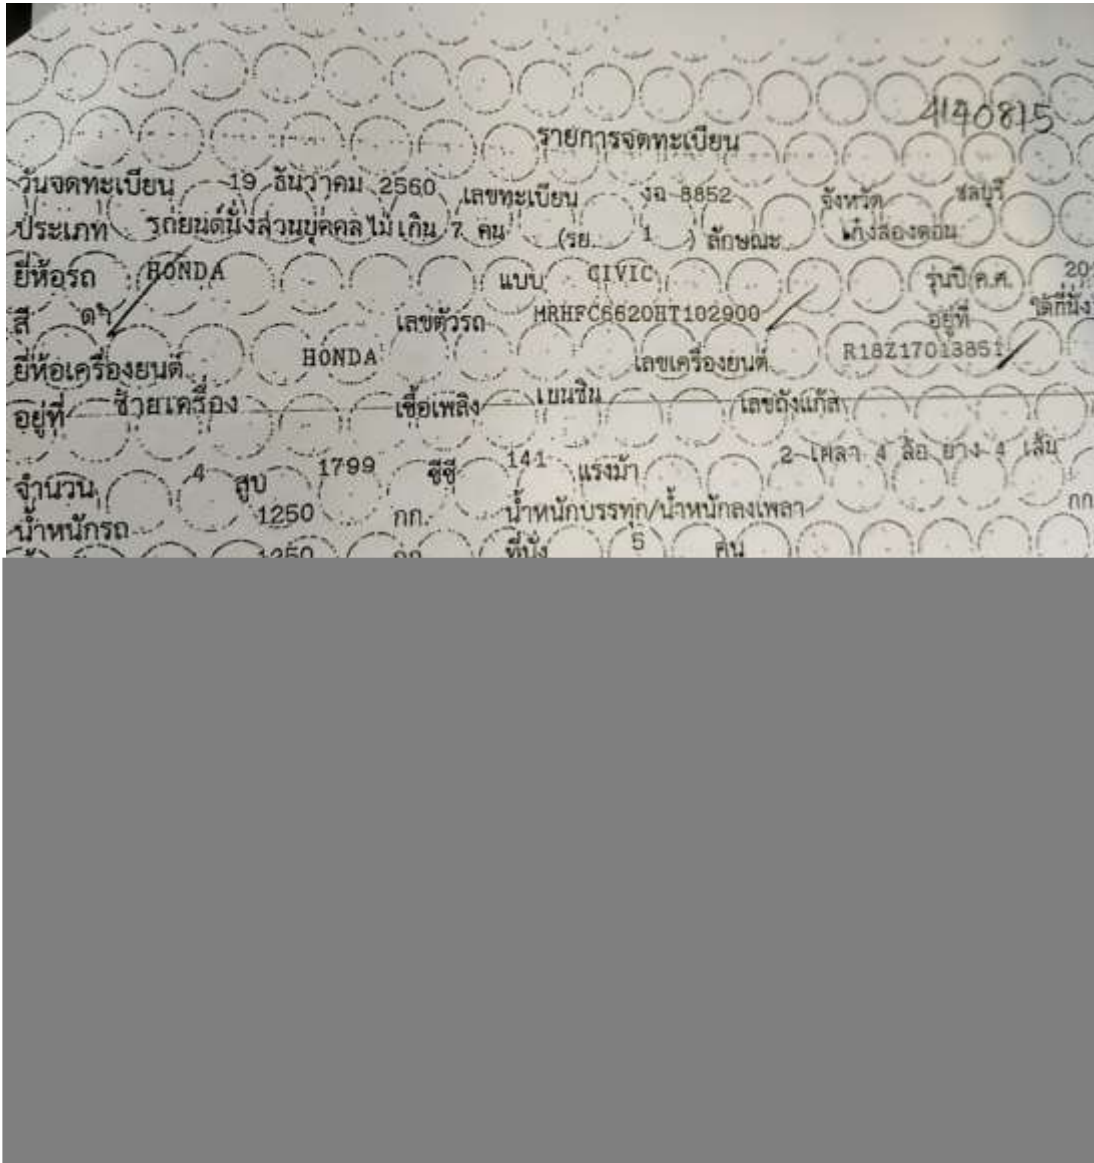 4140815
รายการจดทะเบียน
วันจดทะเบียน 19 ธันวาคม 2560 เลขทะเบียน งฉ 8852 จังหวัด ชลบุรี
ประเภท รถยนต์นั่งส่วนบุคคลไม่เกิน 7 คน (รย. 1 ) ลักษณะ เก๋งสองตอน
ยี่ห้อรถ HONDA แบบ CIVIC รุ่นปี ค.ศ. 20
สี ดำ เลขตัวรถ MRHFC6620HT102900 อยู่ที่ ใต้ที่นั่ง
ยี่ห้อเครื่องยนต์ HONDA เลขเครื่องยนต์ R18Z17013851
อยู่ที่ ซ้ายเครื่อง เชื้อเพลิง เบนซิน เลขถังแก๊ส
จำนวน 4 สูบ 1799 ซีซี 141 แรงม้า 2 เพลา 4 ล้อ ยาง 4 เส้น
น้ำหนักรถ 1250 กก. น้ำหนักบรรทุก/น้ำหนักลงเพลา กก
1250 กก ที่นั่ง 5 คน